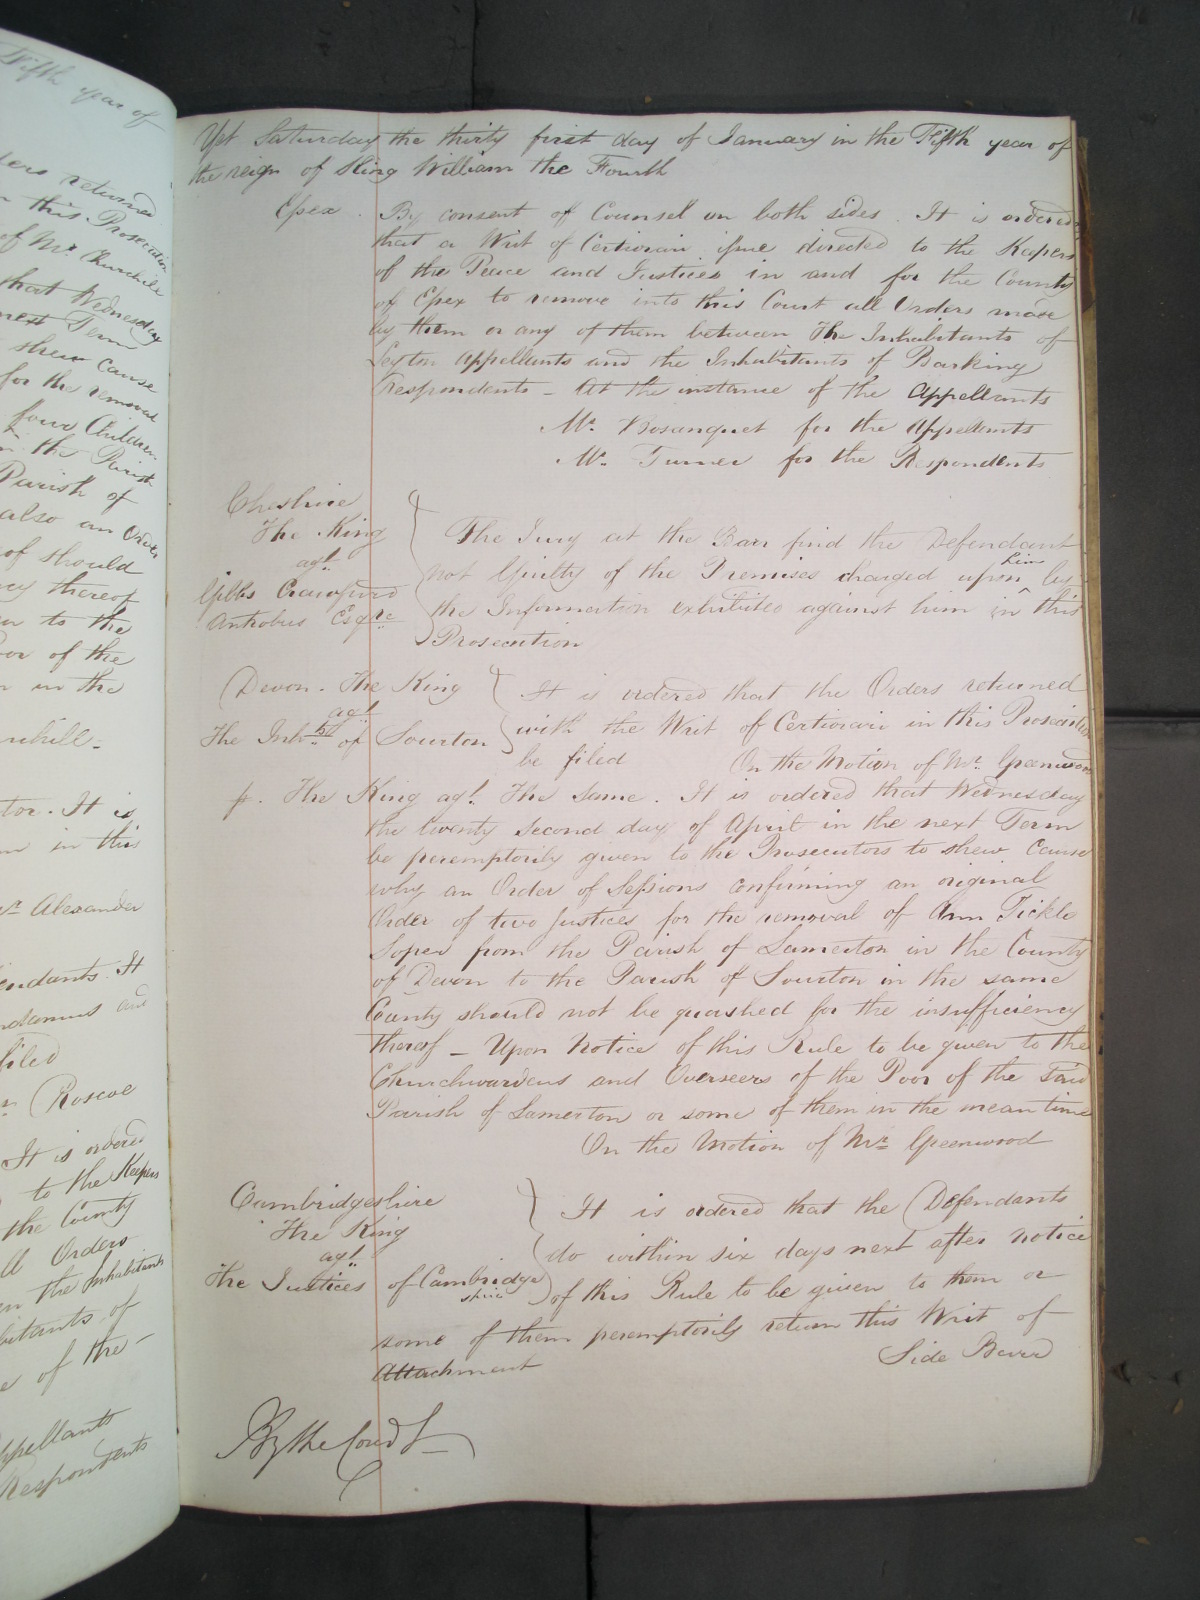 Fifth year of
returned
this Prosecution
of Mr. Churchill
that Wednesday
next Term
shew cause
for the removal
four Children
the Parish
Parish of
also an Order
of should
thereof
to the
Poor of the
in the
tor. It is
in this
Alexander
endants. It
ndamus and
filed
Roscoe
It is ordered
to the Keepers
the County
all Orders
the Inhabitants
bitants of
of the
Appellants
Respondents
Yet Saturday the thirty first day of January in the Fifth year of
the reign of King William the Fourth
Essex. By consent of Counsel on both sides. It is ordered
that a Writ of Certiorari issue directed to the Keepers
of the Peace and Justices in and for the County
of Essex to remove into this Court all Orders made
by them or any of them between the Inhabitants of
Leyton Appellants and the Inhabitants of Barking
Respondents - At the instance of the Appellants
Mr. Bosanquet for the Appellants
Mr. Turner for the Respondents
Cheshire
The King
agt.
Gibbs Crawfurd
Antrobus Esqre
The Jury at the Barr find the Defendant
not Guilty of the Premises charged upon him by
the Information exhibited against him in this
Prosecution
Devon. The King
agt.
The Inhbts. of Sourton
It is ordered that the Orders returned
with the Writ of Certiorari in this Prosecution
be filed On the Motion of Mr. Greenwood
p. The King agt. The Same. It is ordered that Wednesday
the twenty second day of April in the next Term
be peremptorily given to the Prosecutors to shew Cause
why an Order of Sessions confirming an original
Order of two Justices for the removal of Ann Tickle
Soper from the Parish of Lamerton in the County
of Devon to the Parish of Sourton in the same
County should not be quashed for the insufficiency
thereof - Upon Notice of this Rule to be given to the
Churchwardens and Overseers of the Poor of the said
Parish of Lamerton or some of them in the mean time
On the Motion of Mr. Greenwood
Cambridgeshire
The King
agt.
The Justices of Cambridge
shire
It is ordered that the Defendants
do within six days next after notice
of this Rule to be given to them or
some of them peremptorily return this Writ of
Attachment Side Barr
By the Court